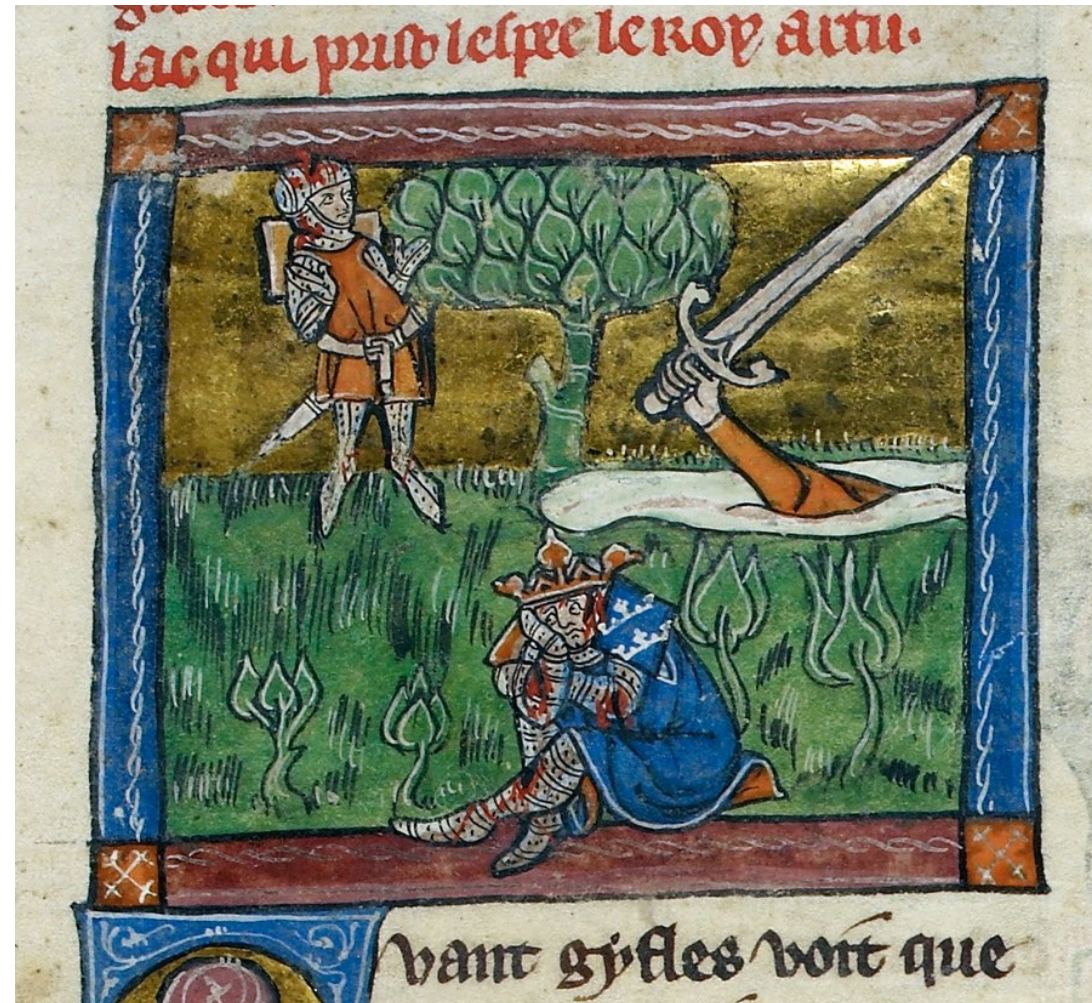 lac qui prist lespee le roy artu.
vant gyfles voit que